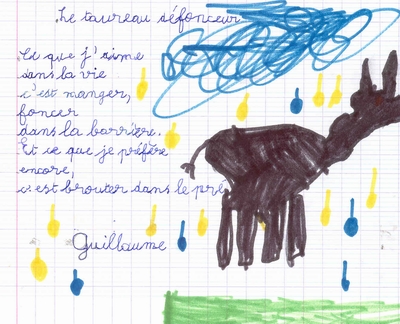 Le taureau défonceur
Ce que j'aime
dans la vie
c'est manger,
foncer
dans la barrière.
Et ce que je préfère
encore,
c'est brouter dans le pré
Guillaume